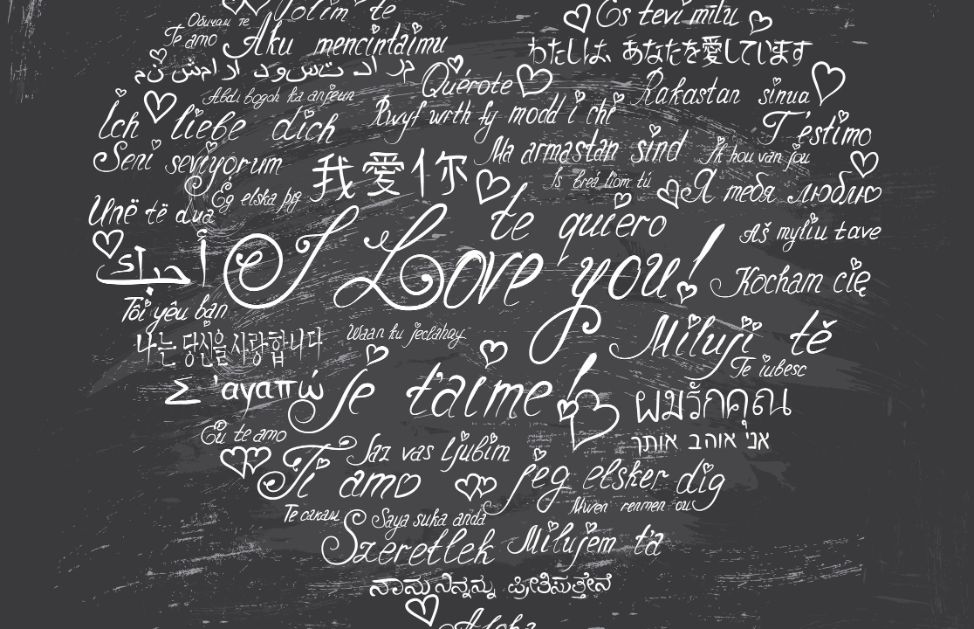 Обичам те
Volim te
Es tevi mīlu
Te amo
Aku mencintaimu
わたしは、あなたを愛しています
Quiérote
Rakastan sinua
Ich liebe dich
Rwyf wrth fy modd i chi
T'estimo
Seni seviyorum
我爱你
Ma armastan sind
Ik hou van jou
Is breá liom tú
Я тебя люблю
Ég elska þig
Unë të dua
te quiero
Aš myliu tave
أحبك
I Love you!
Kocham cię
Tôi yêu bạn
나는 당신을 사랑합니다
Waan ku jeclahay
Miluji tě
Te iubesc
Σ 'αγαπώ
je t'aime!
ผมรักคุณ
אני אוהב אותך
Eu te amo
Jaz vas ljubim
Ti amo
jeg elsker dig
Mwen renmen ou
Те сакам
Saya suka anda
Szeretlek
Milujem ťa
ನಾನು ನಿನ್ನನ್ನು ಪ್ರೀತಿಸುತ್ತೇನೆ
Aloha